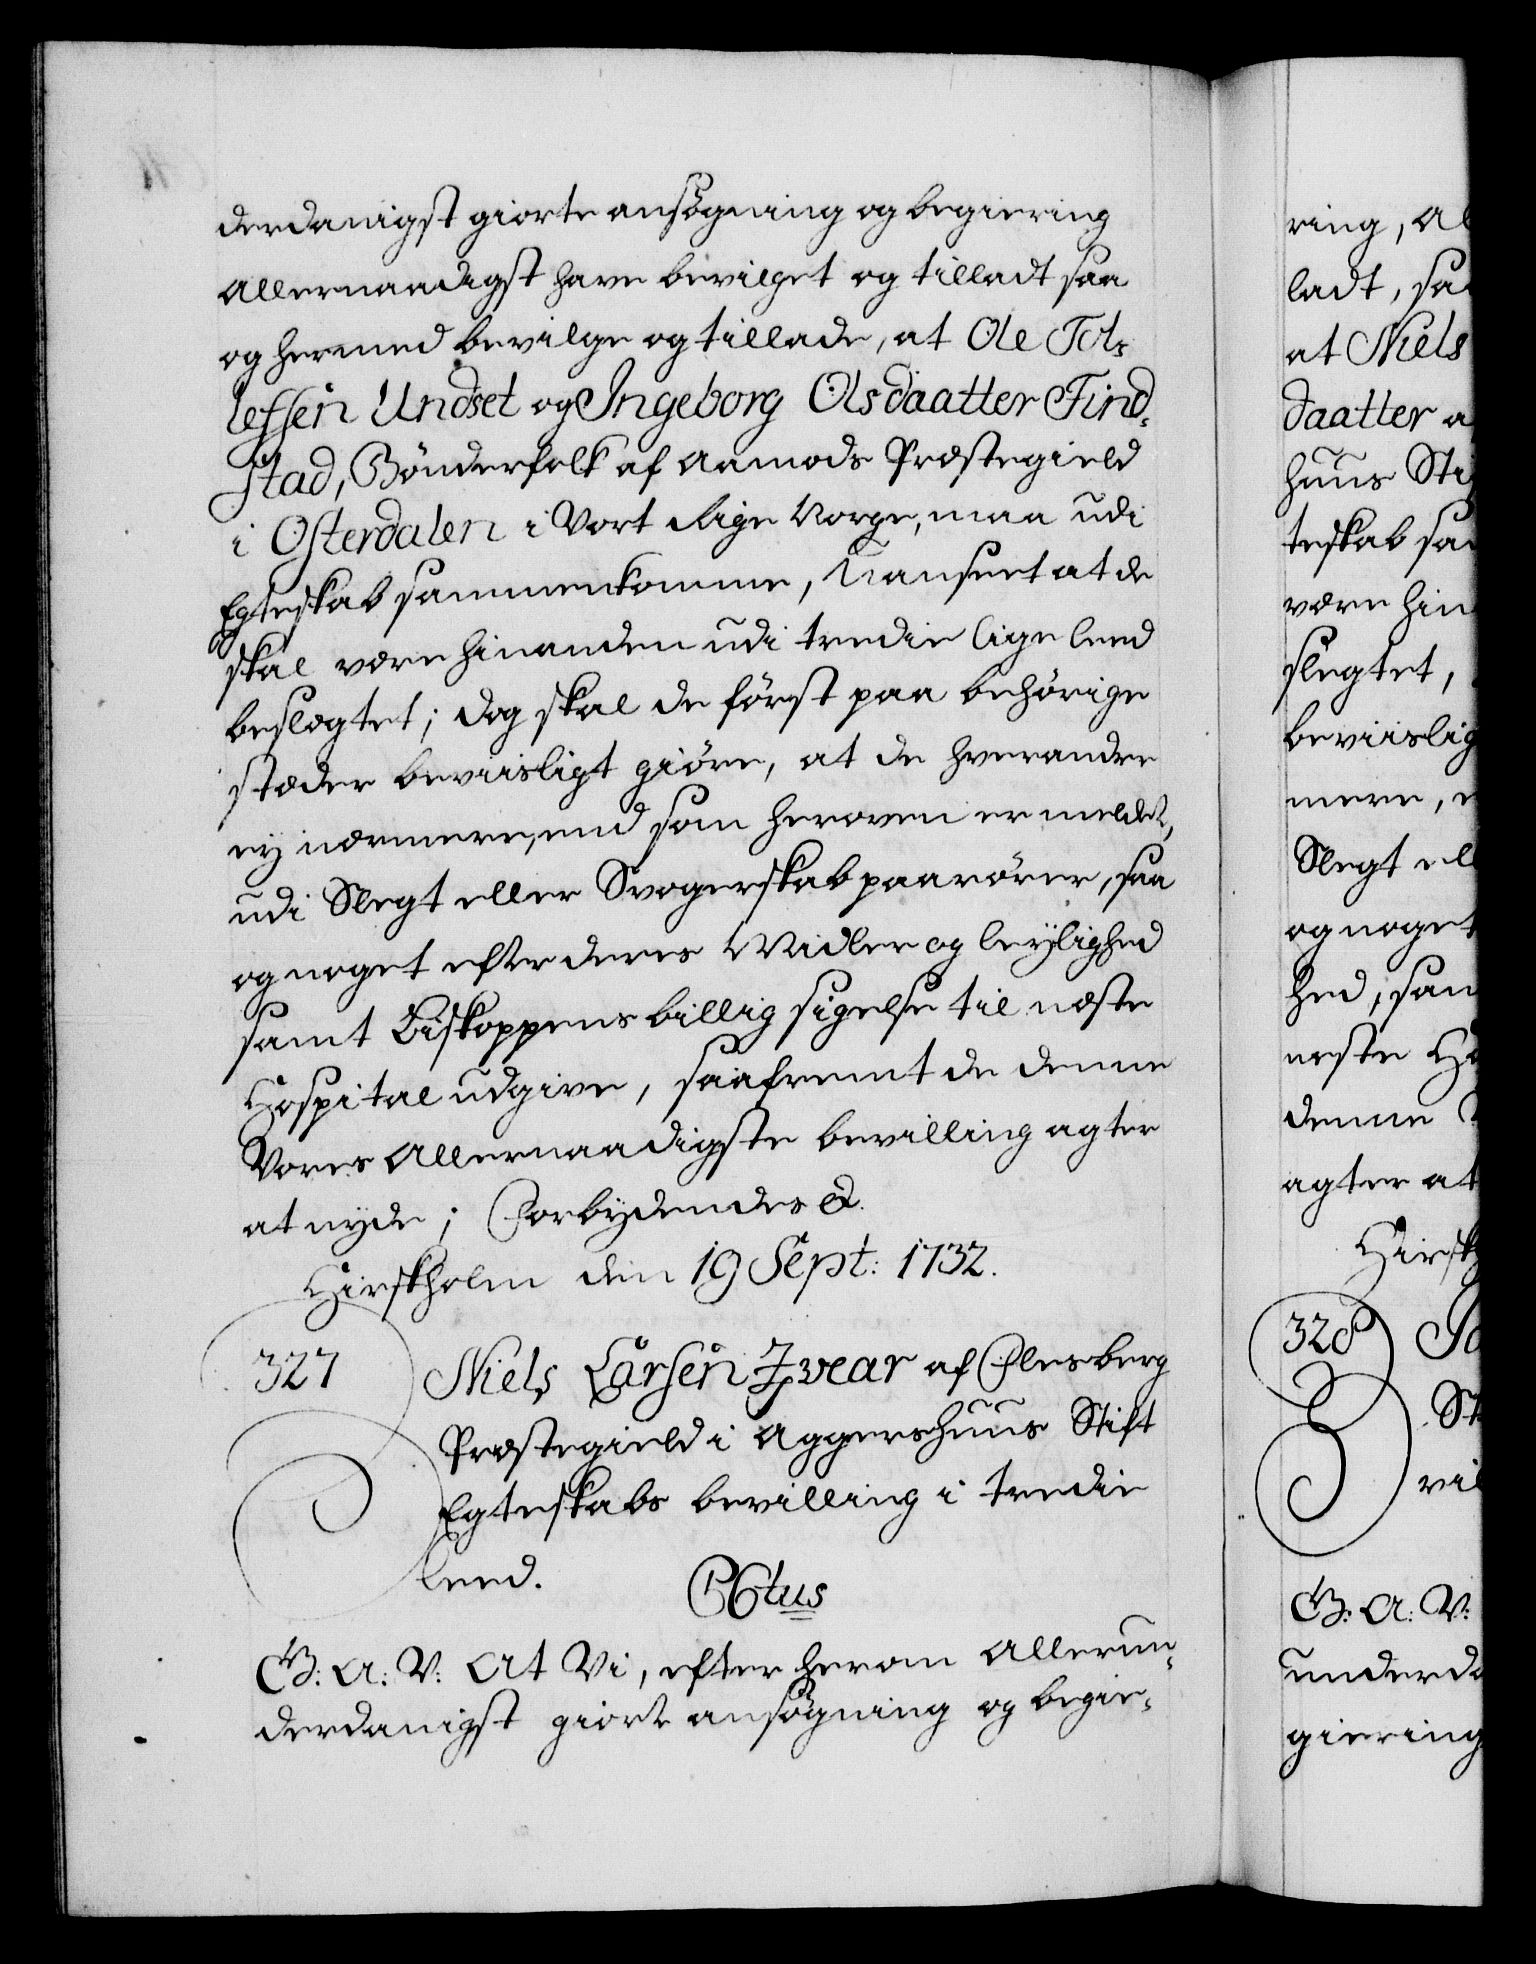 derdanigst giorte ansögning og begiering
allernaadigst have bevilget og tilladt saa
og hermed bevilge og tillade, at Ole Tol-
lefsen Undset og Ingeborg Olsdaatter Find-
stad, Bönderfolk af Aamods Præstegield
i Osterdalen i Vort Rige Norge, maa udi
Egteskab sammenkomme, Uanseet at de
skal være hinanden udi tredie lige leed
beslægtet; dog skal de först paa behörige
stæder beviisligt giöre, at de hverandre
ey nærmere, end som heroven er meldet,
udi Slegt eller Svogerskab paarörer, saa
og noget efter deres Midler og leylighed
samt Biskoppens billig sigelse til næste
Hospital udgive, saafremt de denne
Vores allernaadigste bevilling agter
at nyde; Forbydendes &.
Hirskholm den 19 Sept: 1732.
327 Niels Larsen Zvear af Flesberg
Præstegield i Aggershuus Stift
Egteskabs bevilling i tredie
leed.
C6tus
G: A: V: At Vi, efter herom allerun-
derdanigst giort ansögning og begie-
ring, al
ladt, saa
at Niels
daatter a
huus Sti
teskab sa
være hin
slegtet,
beviislig
mere, e
Slegt ell
og noget
hed, sam
neste Ho
denne
agter at
Hirsk
328
St
vil
G: A: V:
underda
giering